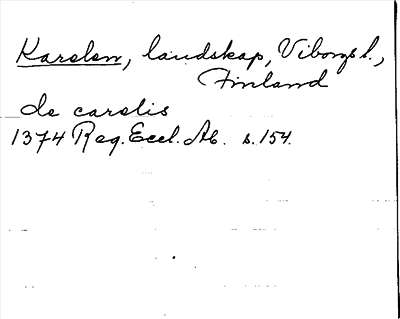 Karelen, landskap, Viborgs l.,
Finland
de carelis
1374 Reg. Eccl. Ab. s. 154.